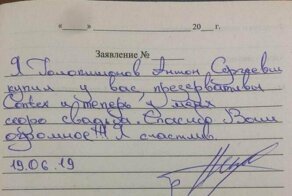 «    »    20    г.
Заявление №
Я Голокищонов Антон Сергеевич
купил у вас, презервативы
Contex и теперь у меня
скоро свадьба. Спасибо Вам
огромное!!! Я счастлив.
19.06.19